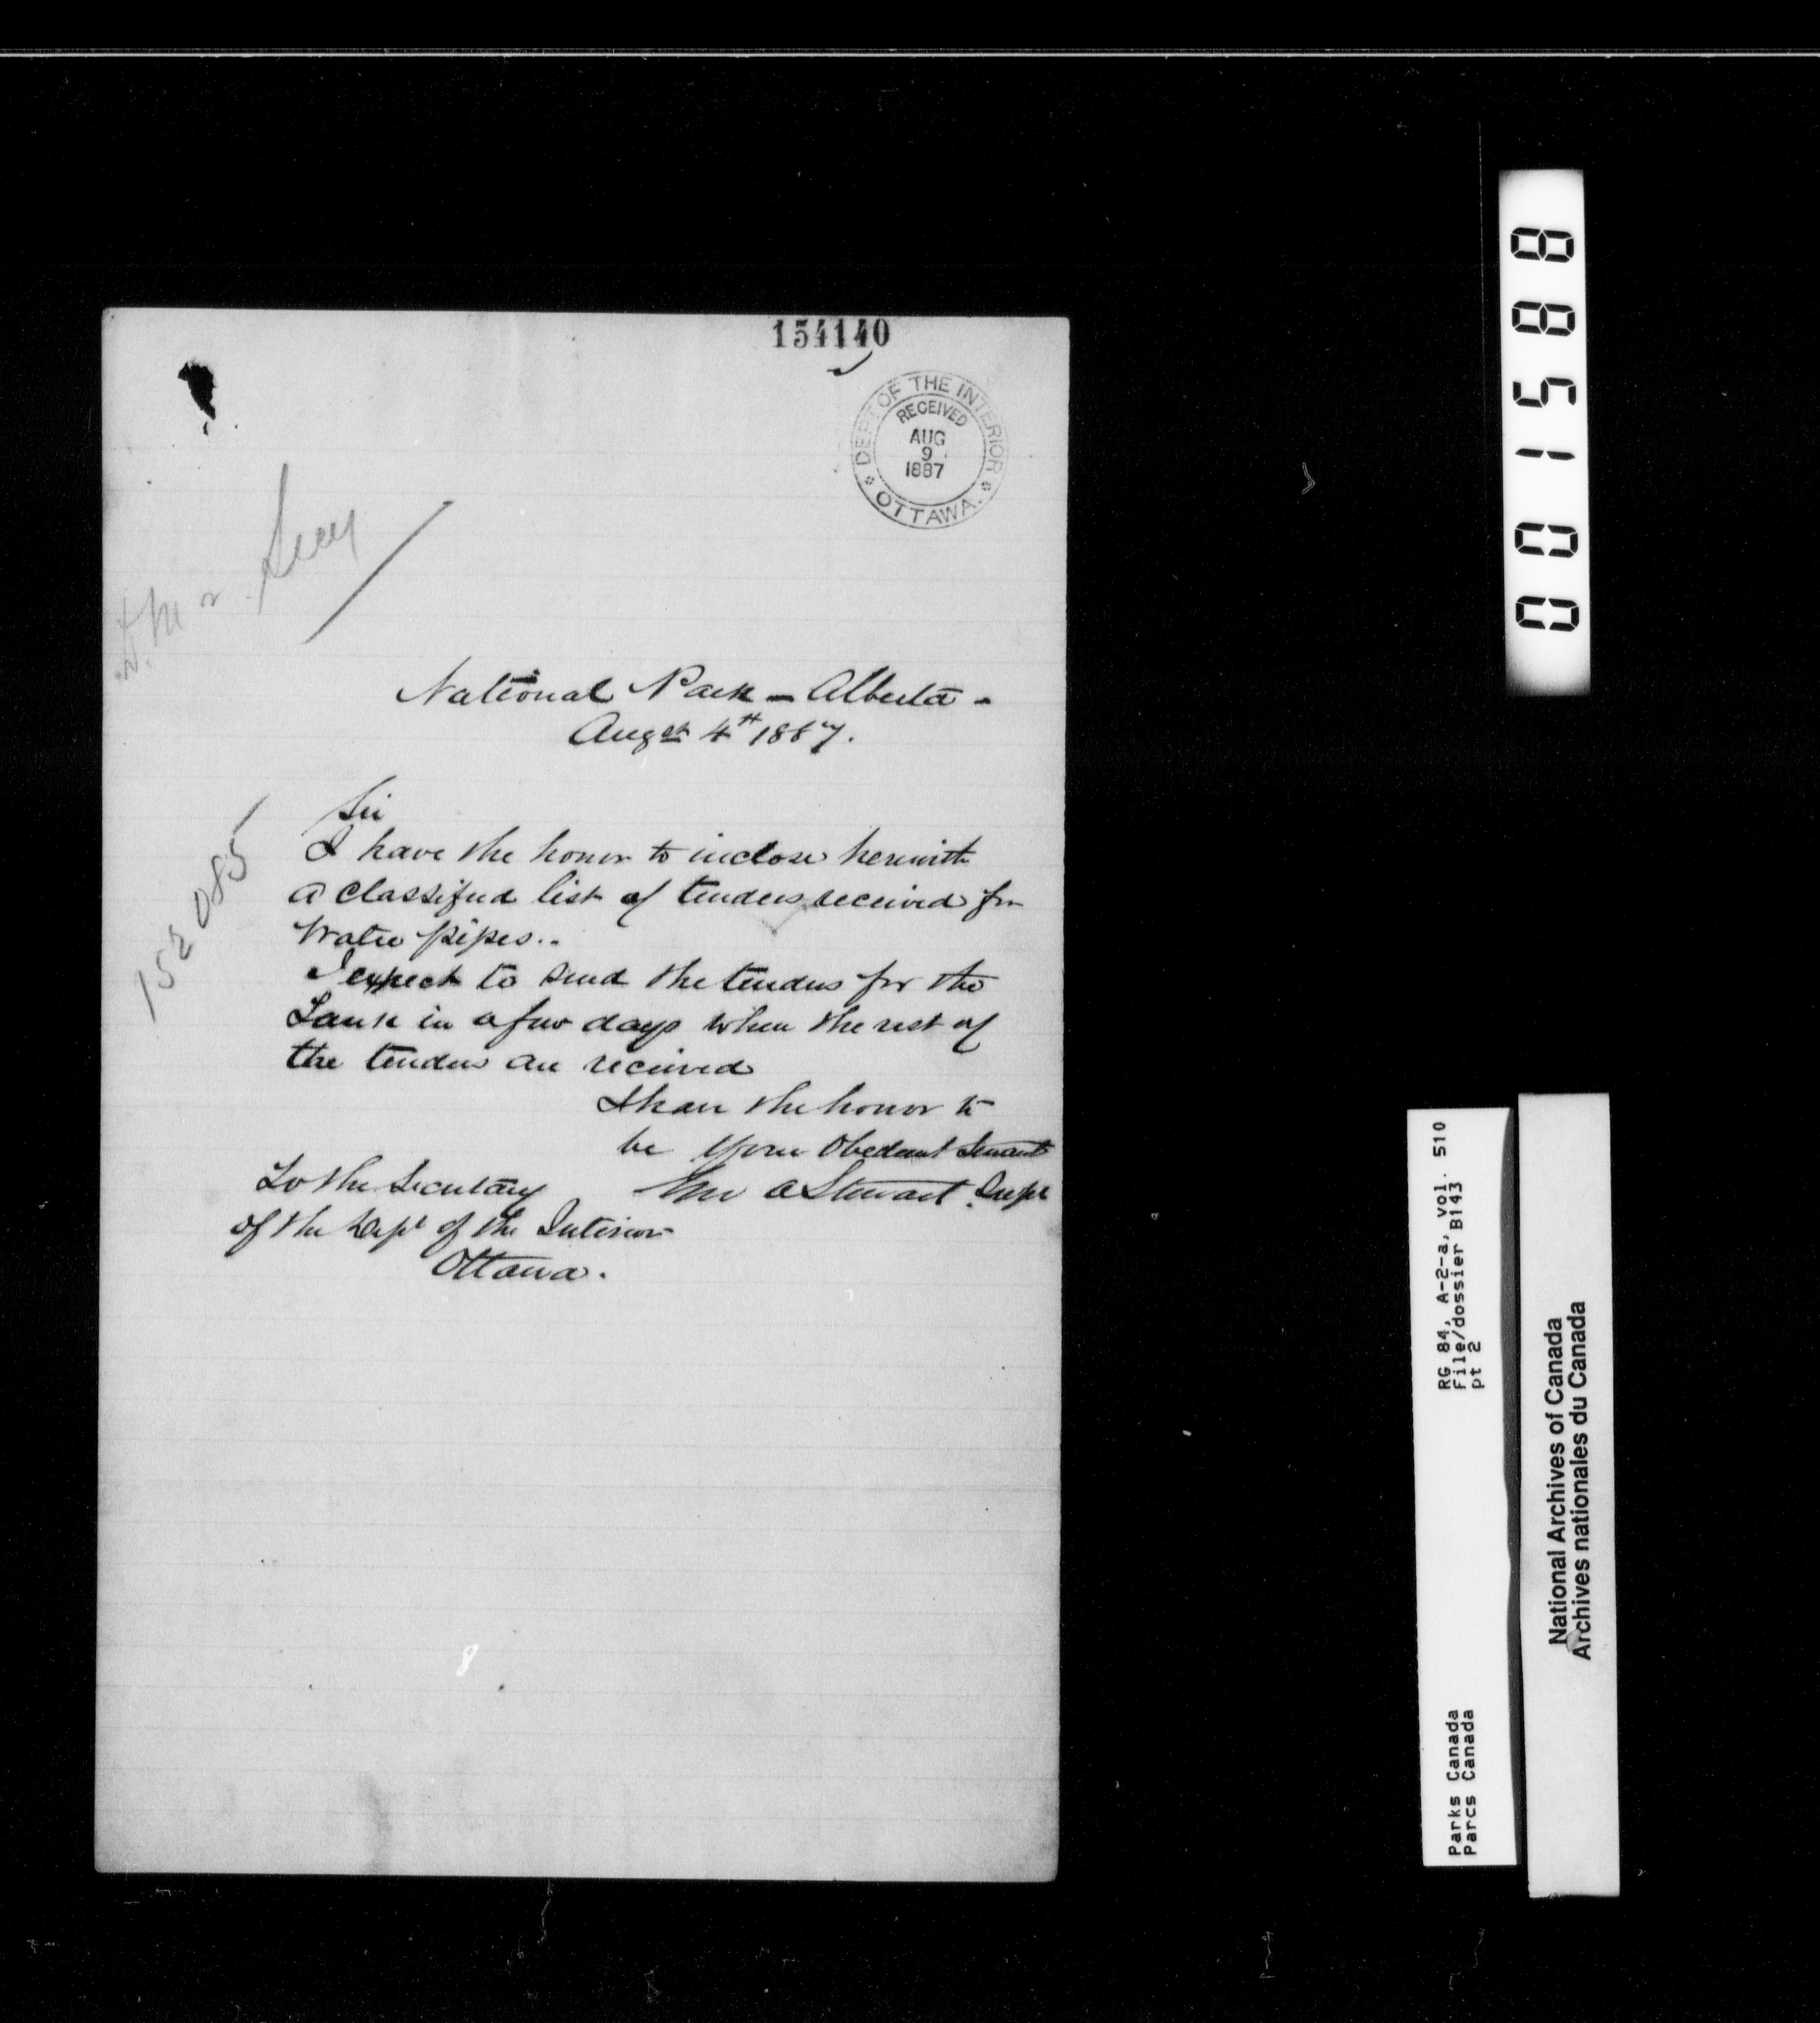 154140
DEPT OF THE INTERIOR
RECEIVED
AUG
9
1887
OTTAWA.
Secy
National Park - Alberta -
Augst 4th 1887.
152085
Sir
I have the honor to inclose herewith
a classified list of tenders received for
Water pipes..
I expect to send the tenders for the
Tank in a few days when the rest of
the tenders are received
I have the honor to
be your Obedient Servant
Geo A Stewart. Supt
To the Secretary
of the Dept of the Interior
Ottawa.
8
001588
RG 84, A-2-a, vol. 510
File/dossier B143
pt 2
Parks Canada
Parcs Canada
National Archives of Canada
Archives nationales du Canada